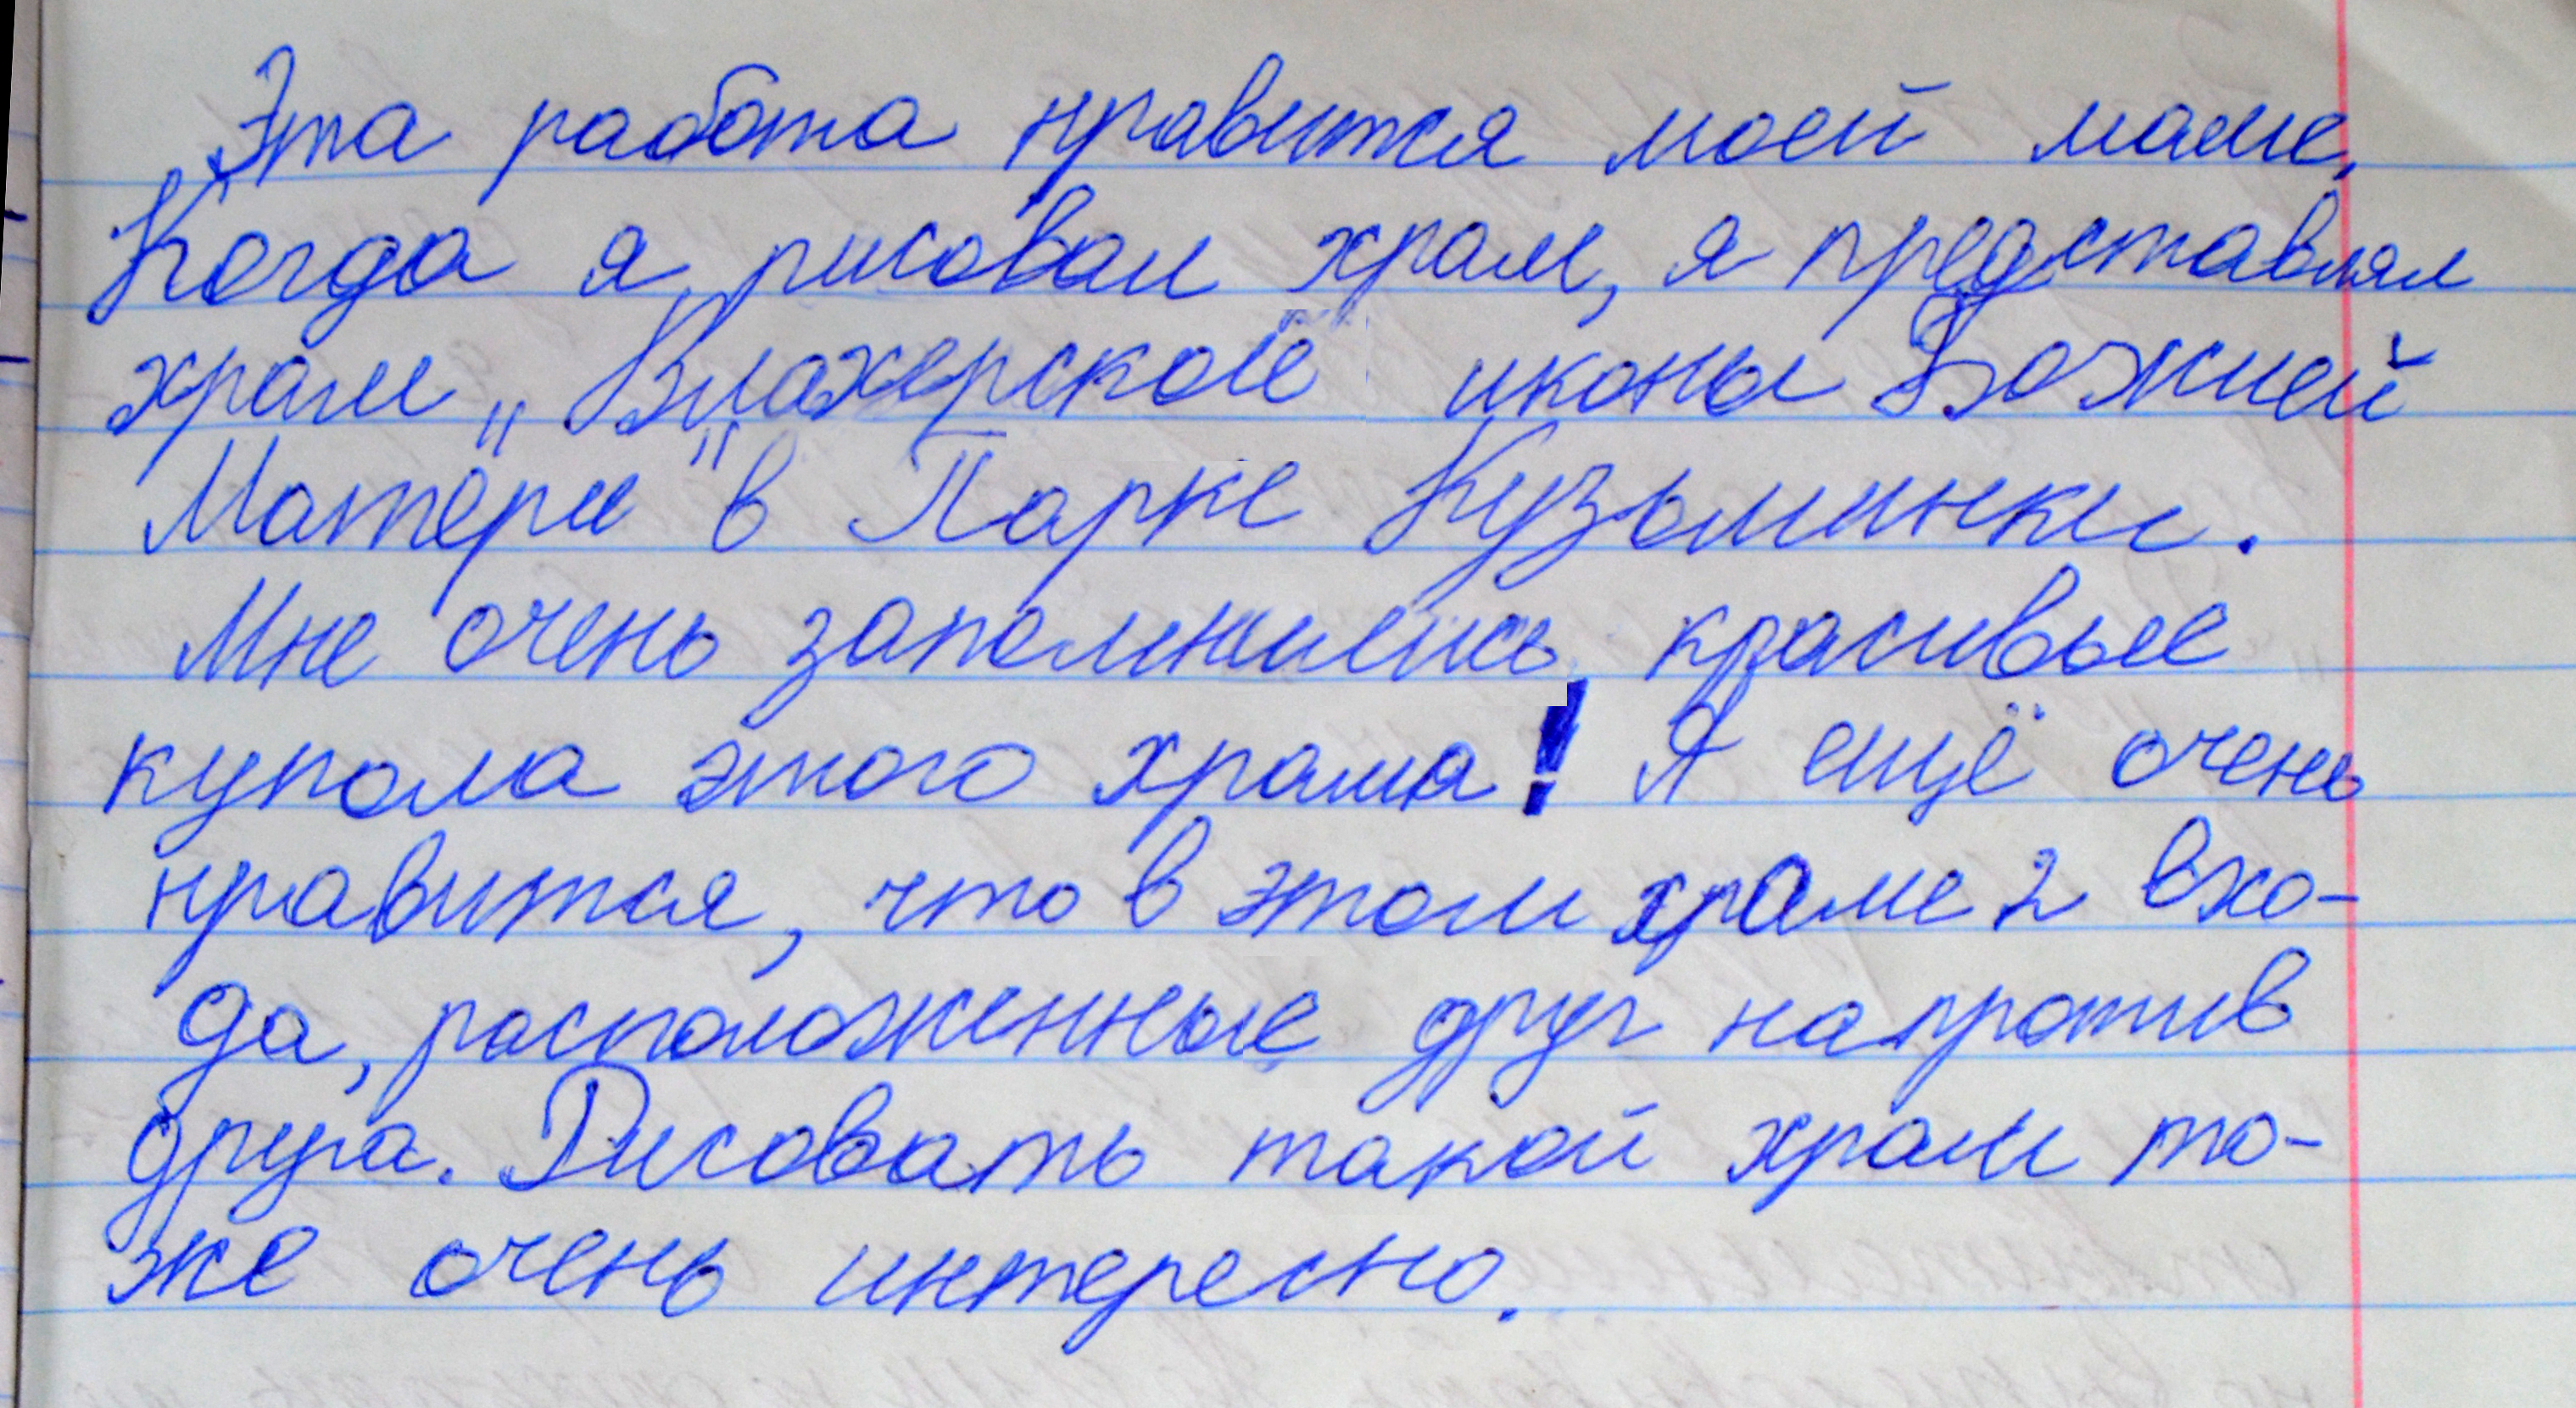 Эта работа нравится моей маме.
Когда я рисовал храм, я представлял
храм „Влахерской иконы Божией
Матери" в Парке Кузьминки.
Мне очень запомнились красивые
купола этого храма! Я ещё очень
нравится, что в этом храме 2 вхо-
да, расположенные друг напротив
друга. Рисовать такой храм то-
же очень интересно.